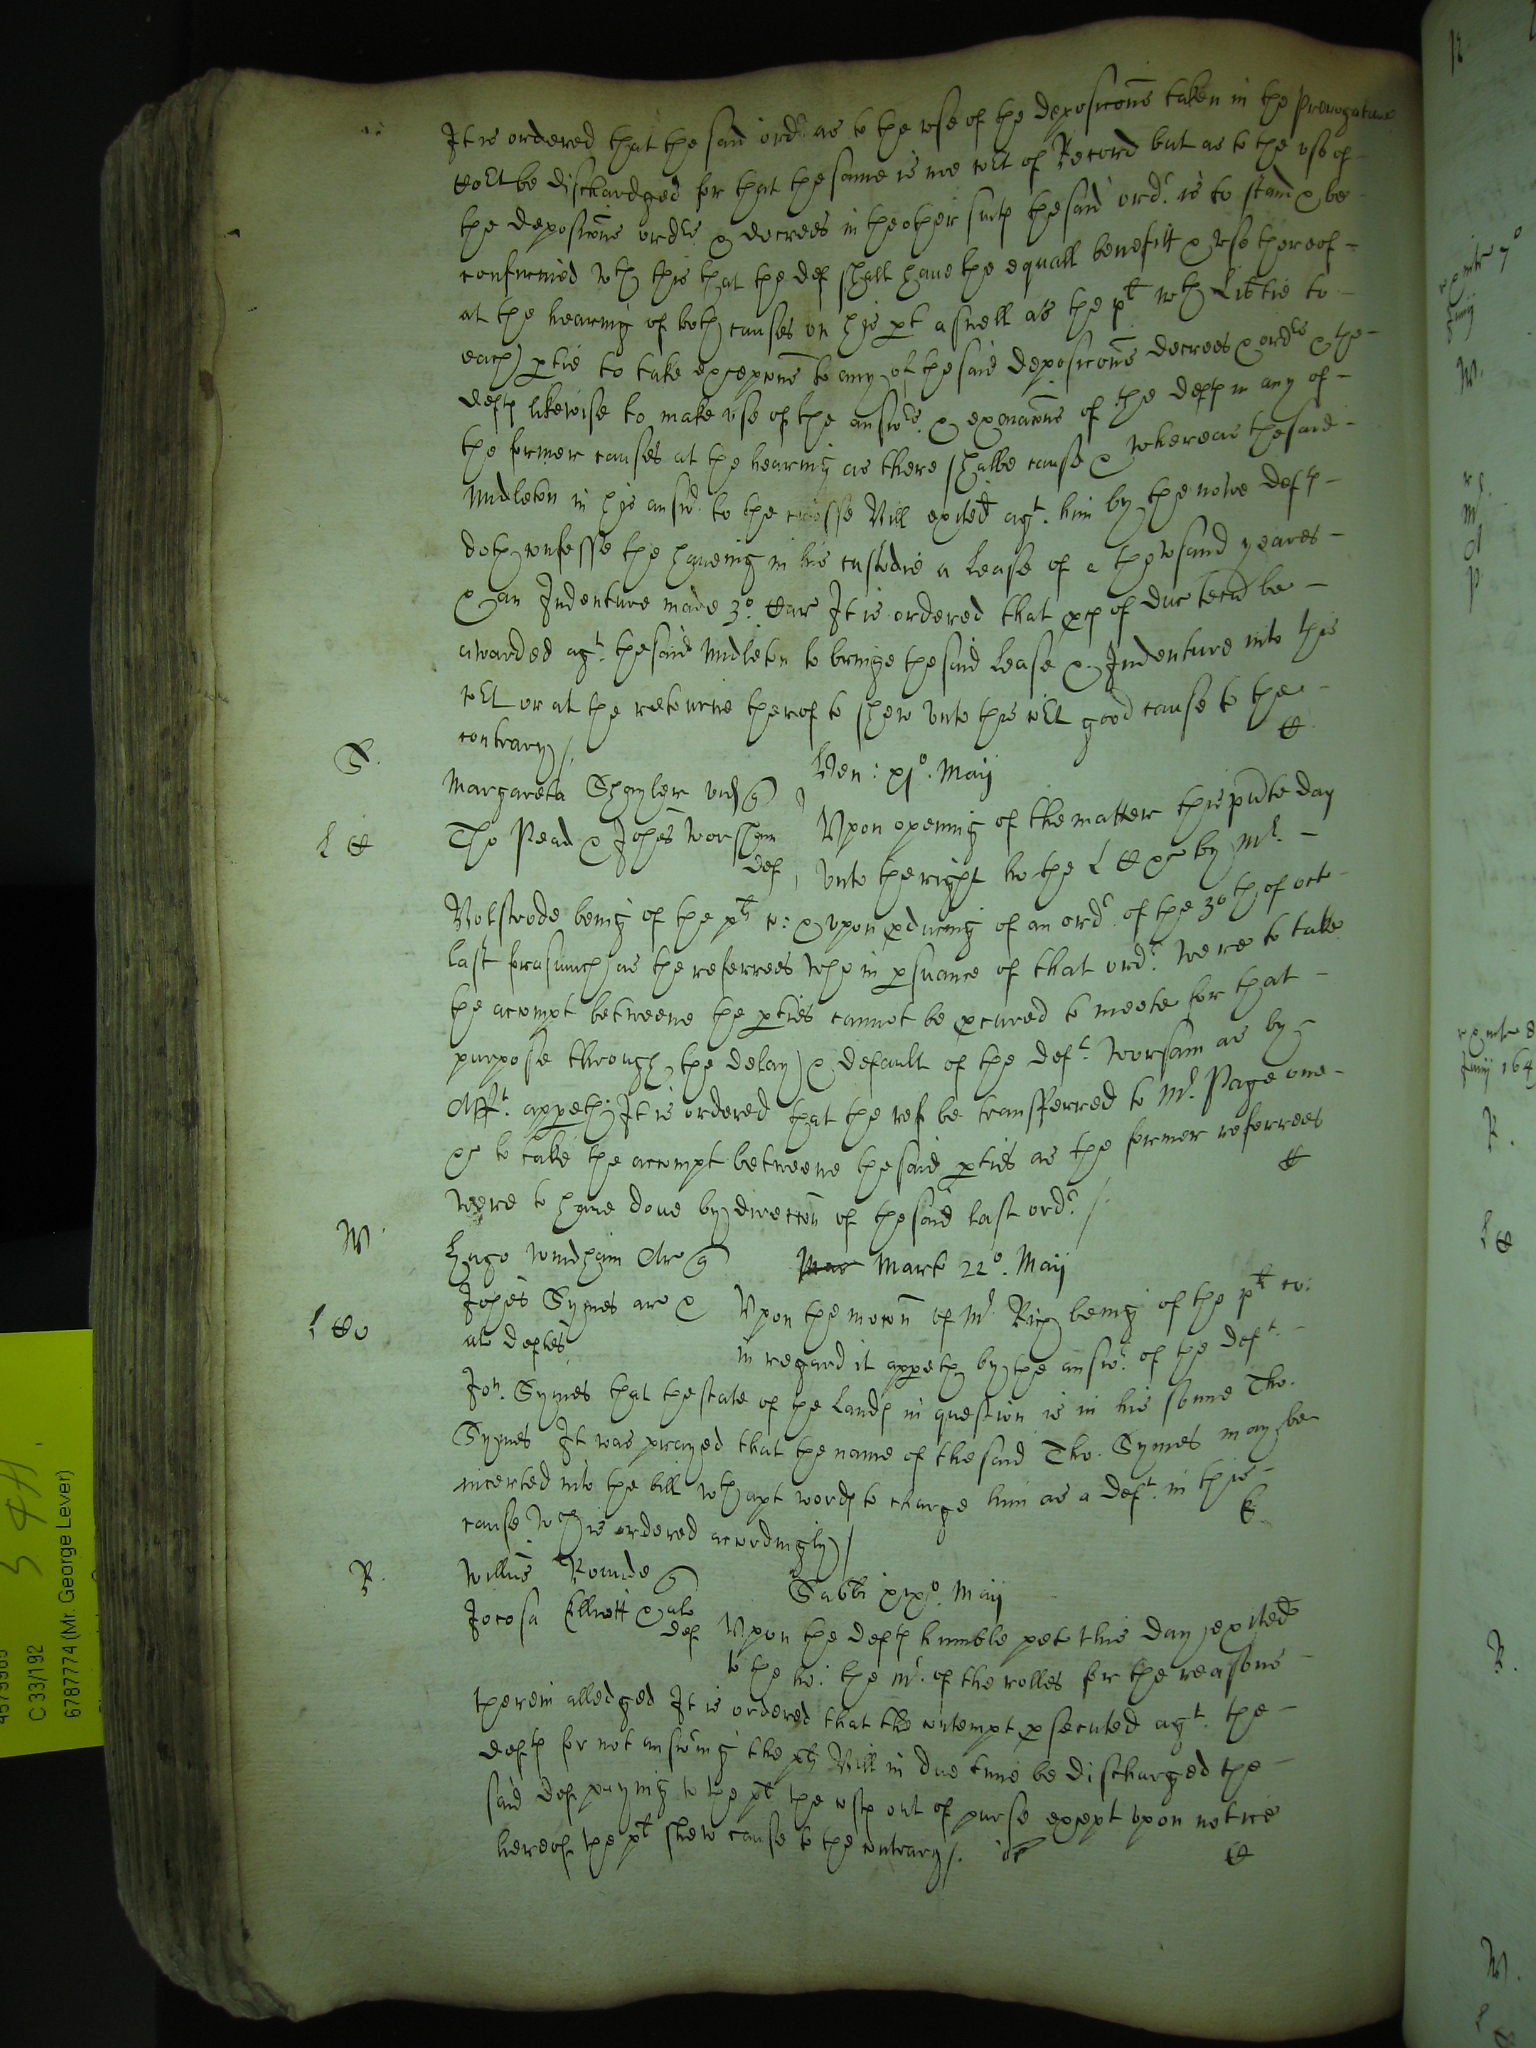 It is ordered that the said ordr as to the vse of the deposicons taken in the Prerogative
Cort be dischardged for that the same is noe cort of Record but as to the vse of
the deposicons ordrs & decrees in the other suits the said ordr is to stand & be
confirmed wth this that the def shall haue the equall benefitt & vse thereof
at the hearing of both causes on his pt aswell as the plt wth Libtie to
each ptie to take excepcons to any of the said deposicons decrees & ordrs & the
defts likewise to make vse of the answrs & exmacons of the defts in any of
the former causes at the hearing as there shalbe cause & whereas the said
Midleton in his answr to the crosse Bill exited agt. him by the nowe defts
doth confesse the haueing in his custodie a Lease of a thowsand yeares
& an Indenture made 3o. Car It is ordered that pces of duc tecu be
awarded agt. the said Midleton to bringe the said Lease & Indenture into this
cort or at the retourne therof to shew vnto this cort good cause to the
contrary /
S.
Margareta Shyler vid q
Ven: xjo. Maij
L C
Tho Read & Johes Worsham
def
Vpon opening of the matter this pnte day
vnto the right ho the L C &c by Mr.
Bolstrode being of the plts co: & vpon pducing of an ordr. of the 30th of octo
last forasmuch as the referrees who in psuance of that ordr. were to take
the accompt betweene the pties cannot be pcured to meete for that
purpose through the delay & default of the deft. Worsam as by
Afft. appeth It is ordered that the ref be transferred to Mr. Page one
&c to take the accompt betweene the said pties as the former referrees
were to haue done by direccon of the said last ordr. /
W.
Hugo Windham Ar q
Mar Mart 22o. Maij
L Co
Johes Symes ar &
al deftes
Vpon the mocon of Mr. Rich being of the plts co:
in regard it appeth by the answr. of the deft.
Jon. Symes that the state of the Lands in question is in his sonne Tho.
Symes It was prayed that the name of the said Tho. Symes may be
incerted into the bill wth apt words to charge him as a deft. in this
cause wch is ordered accordingly /
R.
Willms Rounde q
Sabbti xixo. Maij
Jocosa Elliott & al
def
Vpon the defts humble peto this day exited
to the ho: the Mr. of the rolles for the reasons
therein alledged It is ordered that the contempt psecuted agt. the
defts for not answring the plts Bill in due time be discharged the
said def paying to the plt the costs out of purse except vpon notice
hereof the plt shew cause to the contrary /.
C 33/192
6787774 (Mr. George Lever)